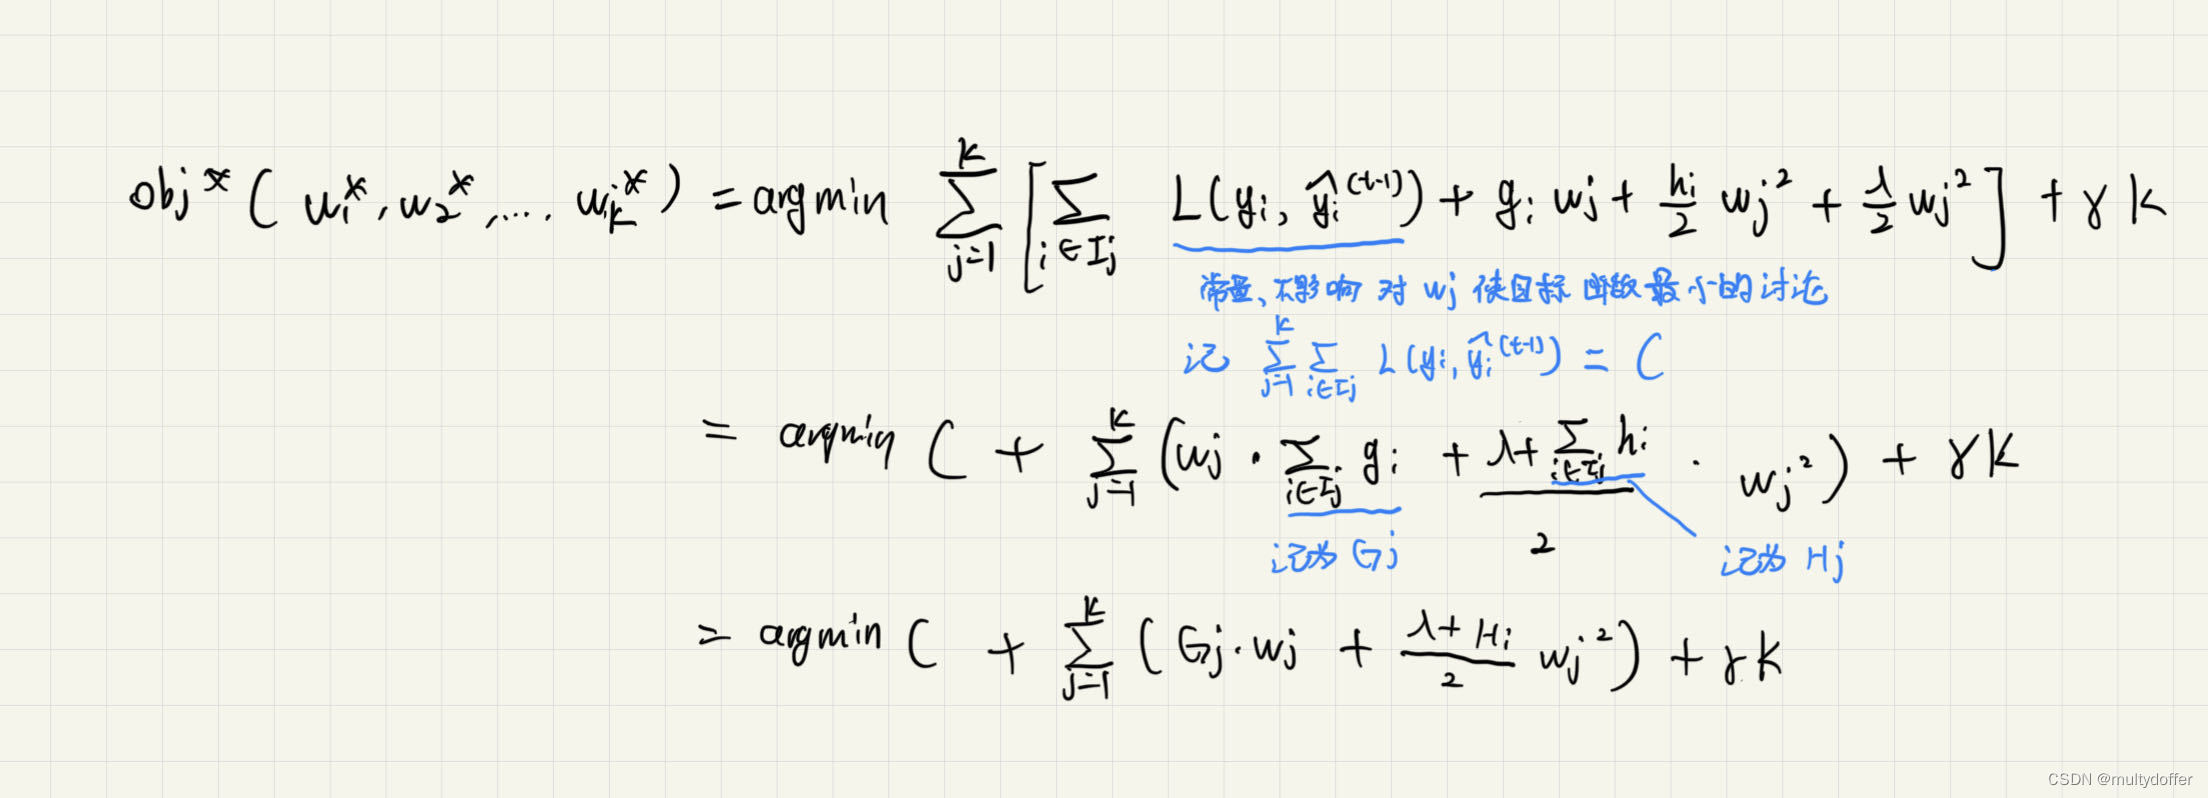 obj*(w₁*, w₂*, .... w_K*) = argmin ∑_{j=1}^{K} [∑_{i∈I_j} L(y_i, ŷ_i^{(t-1)}) + g_i w_j + h_i/2 w_j² + λ/2 w_j²] + γK
常量、不影响对 w_j 使目标函数最小的讨论
记 ∑_{j=1}^{K} ∑_{i∈I_j} L(y_i, ŷ_i^{(t-1)}) = C
= argmin C + ∑_{j=1}^{K} (w_j · ∑_{i∈I_j} g_i + (λ + ∑_{i∈I_j} h_i)/2 · w_j²) + γK
记为 G_j 记为 H_j
= argmin C + ∑_{j=1}^{K} (G_j · w_j + (λ + H_i)/2 w_j²) + γK
CSDN @multydoffer